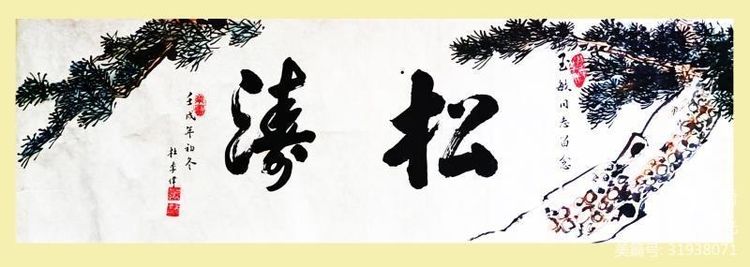 玉敏同志留念
松涛
壬戌年初冬
杜季伟
美篇号: 31938071